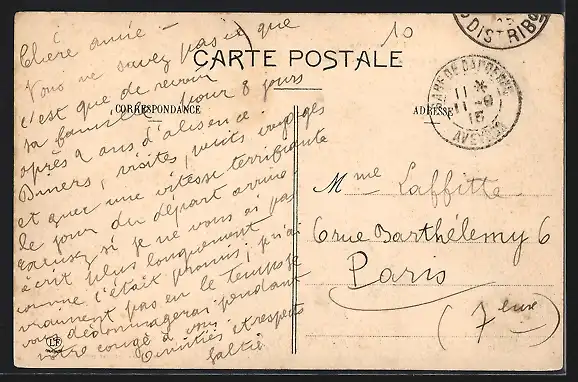 Chère amie —
Vous ne savez pas ce que
c'est que de revoir
sa famille pour 8 jours
après 2 ans d'absence
Diners, visites, petits voyages
et avec une vitesse terrifiante
le jour du départ arrive!
Excusez si je ne vous ai pas
écrit plus longuement
comme c'était promis; je n'ai
vraiment pas eu le temps, je
vous dédommagerai pendant
votre congé à vous
Amitiés et respects
CARTE POSTALE
CORRESPONDANCE
ADRESSE
10
DISTRIB
GARE DE
11 *
11 -9
15
AVEYRON
Mme Laffitte
6 rue Barthélemy 6
Paris
(7eme)